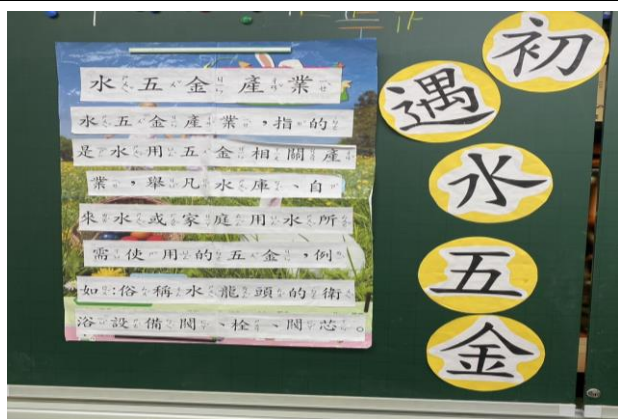 初遇水五金
水五金產業
水五金產業,指的
是水用五金相關產
業,舉凡水庫、自
來水或家庭用水所
需使用的五金,例
如:俗稱水龍頭的衛
浴設備閥、栓、閥芯。